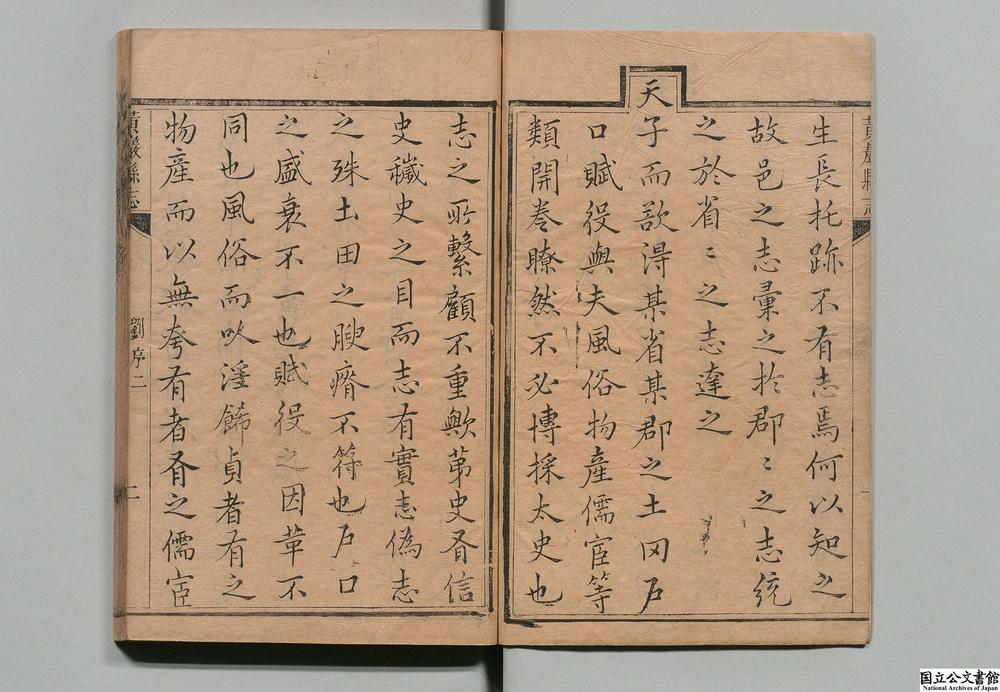 黃巖縣志
生長托跡不有志焉何以知之
故邑之志彙之於郡〻之志統
之於省〻之志達之
天
子而欲得某省某郡之土田戶
口賦役與夫風俗物產儒宦等
類開卷瞭然不必博採太史也
志之所繫顧不重歟苐史有信
史穢史之目而志有實志偽志
之殊土田之腴瘠不符也戶口
之盛衰不一也賦役之因革不
同也風俗而以淫飾貞者有之
物產而以無夸有者有之儒宦
黃巖縣志
劉序二
二
国立公文書館
National Archives of Japan